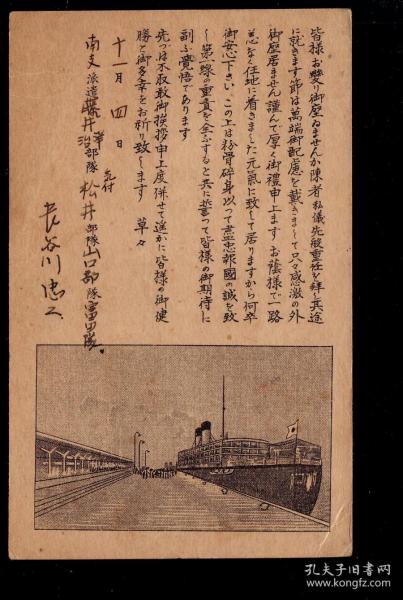 皆様お變り御座ゐませんか陳者私儀先般重任を拜し其途
に就きます節は萬端御配慮を戴きまして只々感激の外
御座居ません謹んで厚く御禮申上ます お蔭様で一路
恙なく任地に着きました元氣に致して居りますから何卒
御安心下さい、この上は粉骨碎身以って盡忠報國の誠を致
し第一線の重責を全ふすると共に誓って皆様の御期待に
副ふ覺悟であります
先づは不取敢御挨拶申上度併せて遙かに皆様の御健
勝と御多幸をお祈り致します 草々
十一月四日
南支派遣藤井 治部隊 松井部隊山口部隊富田隊
長谷川忠
孔夫子旧书网
www.kongfz.com